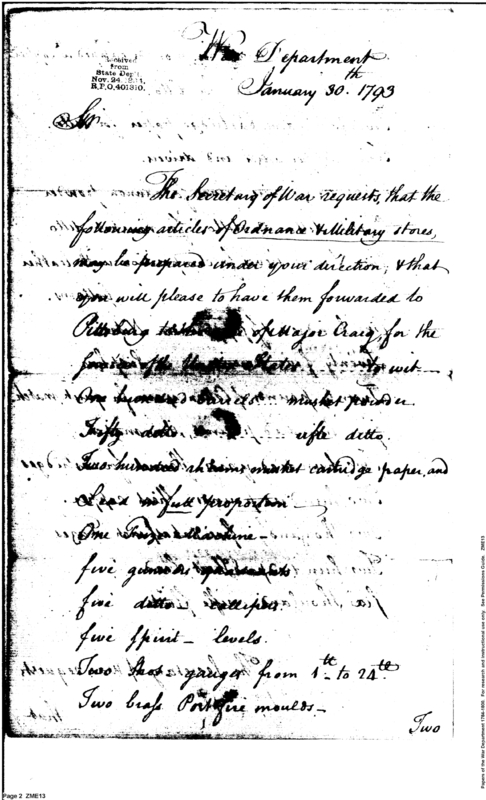 War Department
January 30th. 1793
Received
from
State Dep't
Nov. 24
R.P.O, 401310.
Sir
The Secretary of War requests, that the
following articles of Ordnance & Military stores,
may be prepared under your direction, & that
you will please to have them forwarded to
Pittsburg to the of Major Craig, for the
of the United States to wit—
One hundred barrels musket powder
Fifty ditto rifle ditto.
Two hundred rheams musket cartridge paper, and
Lead in full proportion—
One Machine—
five gunners quadrants
five ditto callipers
five spirit - levels.
Two shot gauges from 1th to 24th.
Two brass Portfire moulds—
Two
Page 2 ZME13
Papers of the War Department 1784-1800. For research and instructional use only. See Permissions Guide. ZME13